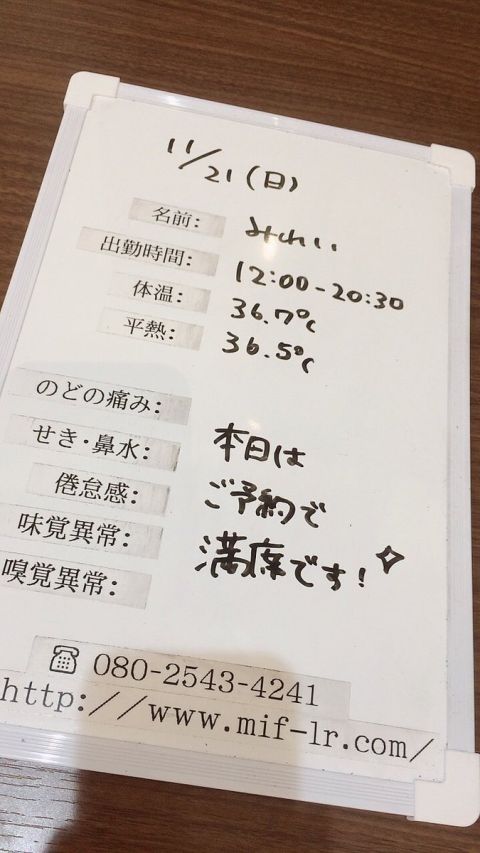 11/21(日)
名前: みれい
出勤時間: 12:00-20:30
体温: 36.7℃
平熱: 36.5℃
のどの痛み:
せき・鼻水: 本日は
倦怠感: ご予約で
味覚異常: 満席です!
嗅覚異常:
☎ 080-2543-4241
http://www.mif-lr.com/